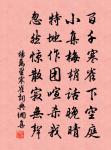 百千寒雀下空庭
小集梅梢話晚晴
特地作團喧殺我
忽然驚散寂無聲
楊萬里寒雀詞典網集